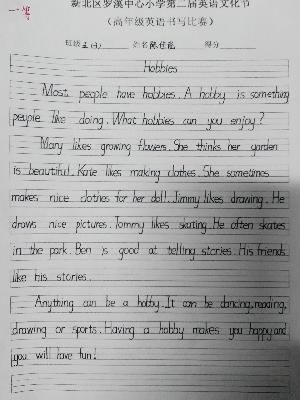 一等
新北区罗溪中心小学第二届英语文化节
（高年级英语书写比赛）
班级 五(4) 姓名 陈佳 得分
Hobbies
Most people have hobbies. A hobby is something
people like doing. What hobbies can you enjoy?
Mary likes growing flowers. She thinks her garden
is beautiful. Kate likes making clothes. She sometimes
makes nice clothes for her doll. Jimmy likes drawing. He
draws nice pictures. Tommy likes skating. He often skates
in the park. Ben is good at telling stories. His friends
like his stories.
Anything can be a hobby. It can be dancing, reading,
drawing or sports. Having a hobby makes you happy and
you will have fun!